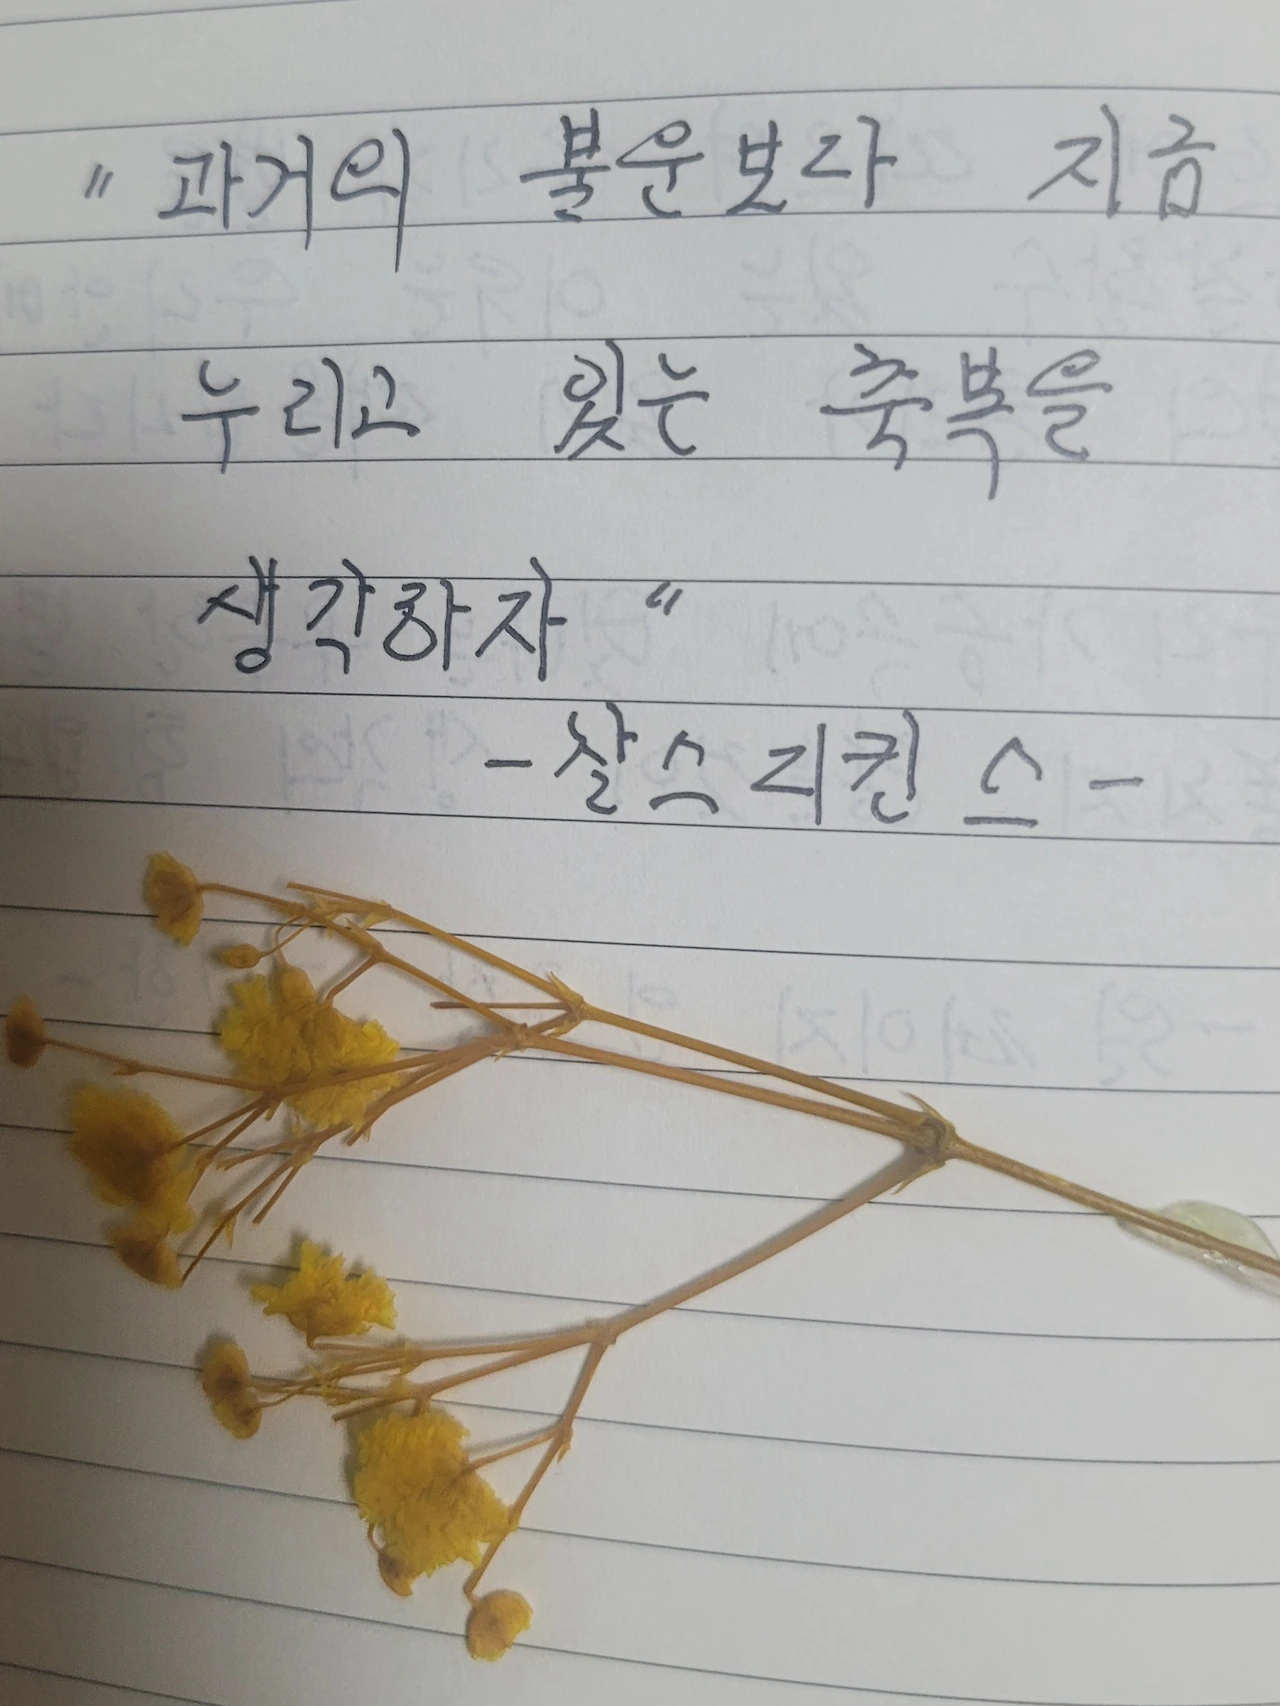 " 과거의 불운보다 지금
누리고 있는 축복을
생각하자 "
- 찰스 리킨스 -